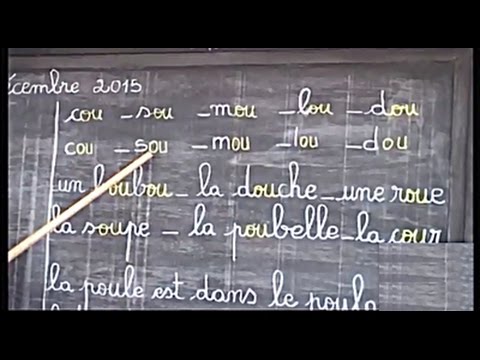 décembre 2015
cou – sou – mou – lou – dou
cou – sou – mou – lou – dou
un boubou – la douche – une roue
la soupe – la poubelle – la cour
la poule est dans le